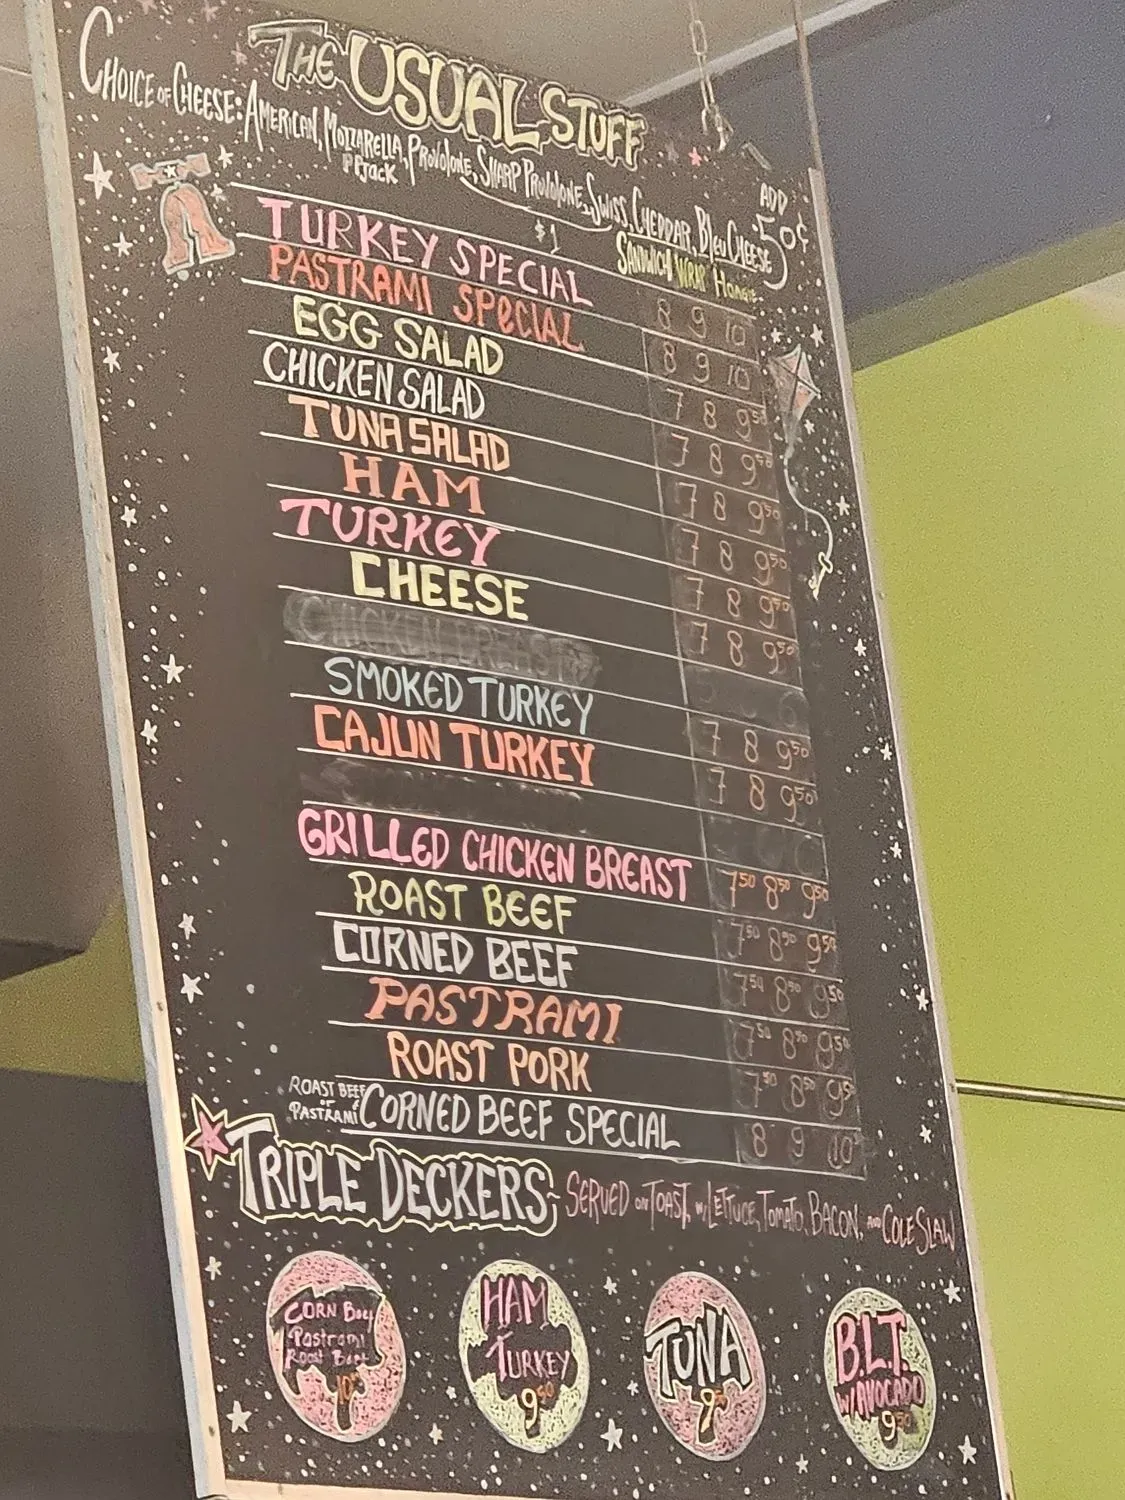 THE USUAL STUFF
CHOICE OF CHEESE: AMERICAN, MOZZARELLA, PROVOLONE, SHARP PROVOLONE, SWISS, CHEDDAR, BLEU CHEESE
PPJack
$1
ADD 50¢
SANDWICH WRAP HOAGIE
TURKEY SPECIAL 8 9 10
PASTRAMI SPECIAL 8 9 10
EGG SALAD 7 8 9 50
CHICKEN SALAD 7 8 9 50
TUNA SALAD 7 8 9 50
HAM 7 8 9 50
TURKEY 7 8 9 50
CHEESE 7 8 9 50
CHICKEN BREAST
SMOKED TURKEY 7 8 9 50
CAJUN TURKEY 7 8 9 50
GRILLED CHICKEN BREAST 7 50 8 50 9 50
ROAST BEEF 7 50 8 50 9 50
CORNED BEEF 7 50 8 50 9 50
PASTRAMI 7 50 8 50 9 50
ROAST PORK 7 50 8 50 9 50
ROAST BEEF
PASTRAMI CORNED BEEF SPECIAL 8 9 10
TRIPLE DECKERS~ SERVED ON TOAST, W/LETTUCE, TOMATO, BACON, AND COLE SLAW
CORN Beef
Pastrami
Roast Beef
10
HAM
TURKEY
9 50
TUNA
9 50
B.L.T.
W/AVOCADO
9 50